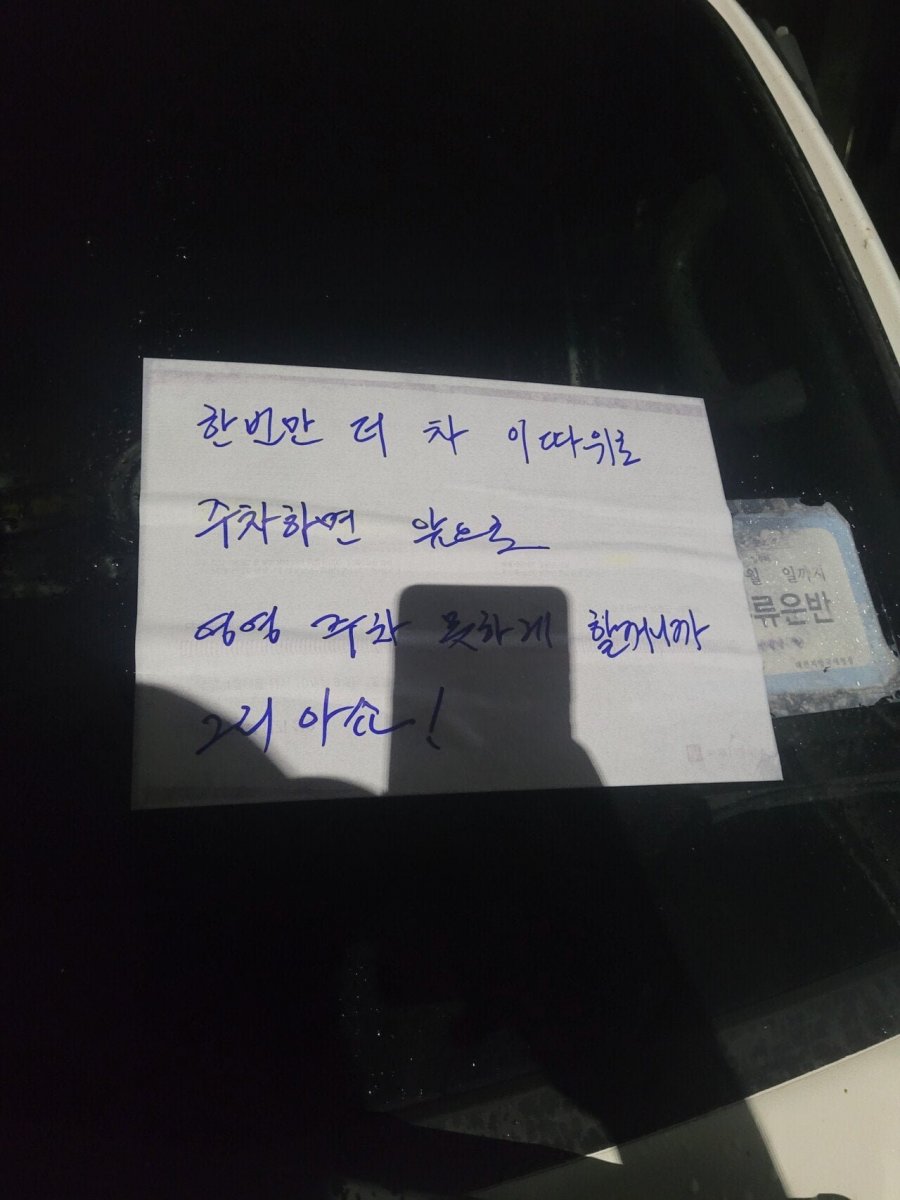 한번만 더 차 이따위로
주차하면 앞으로
영영 주차 못하게 할거니까
그리 아쇼!
월 일까지
류운반